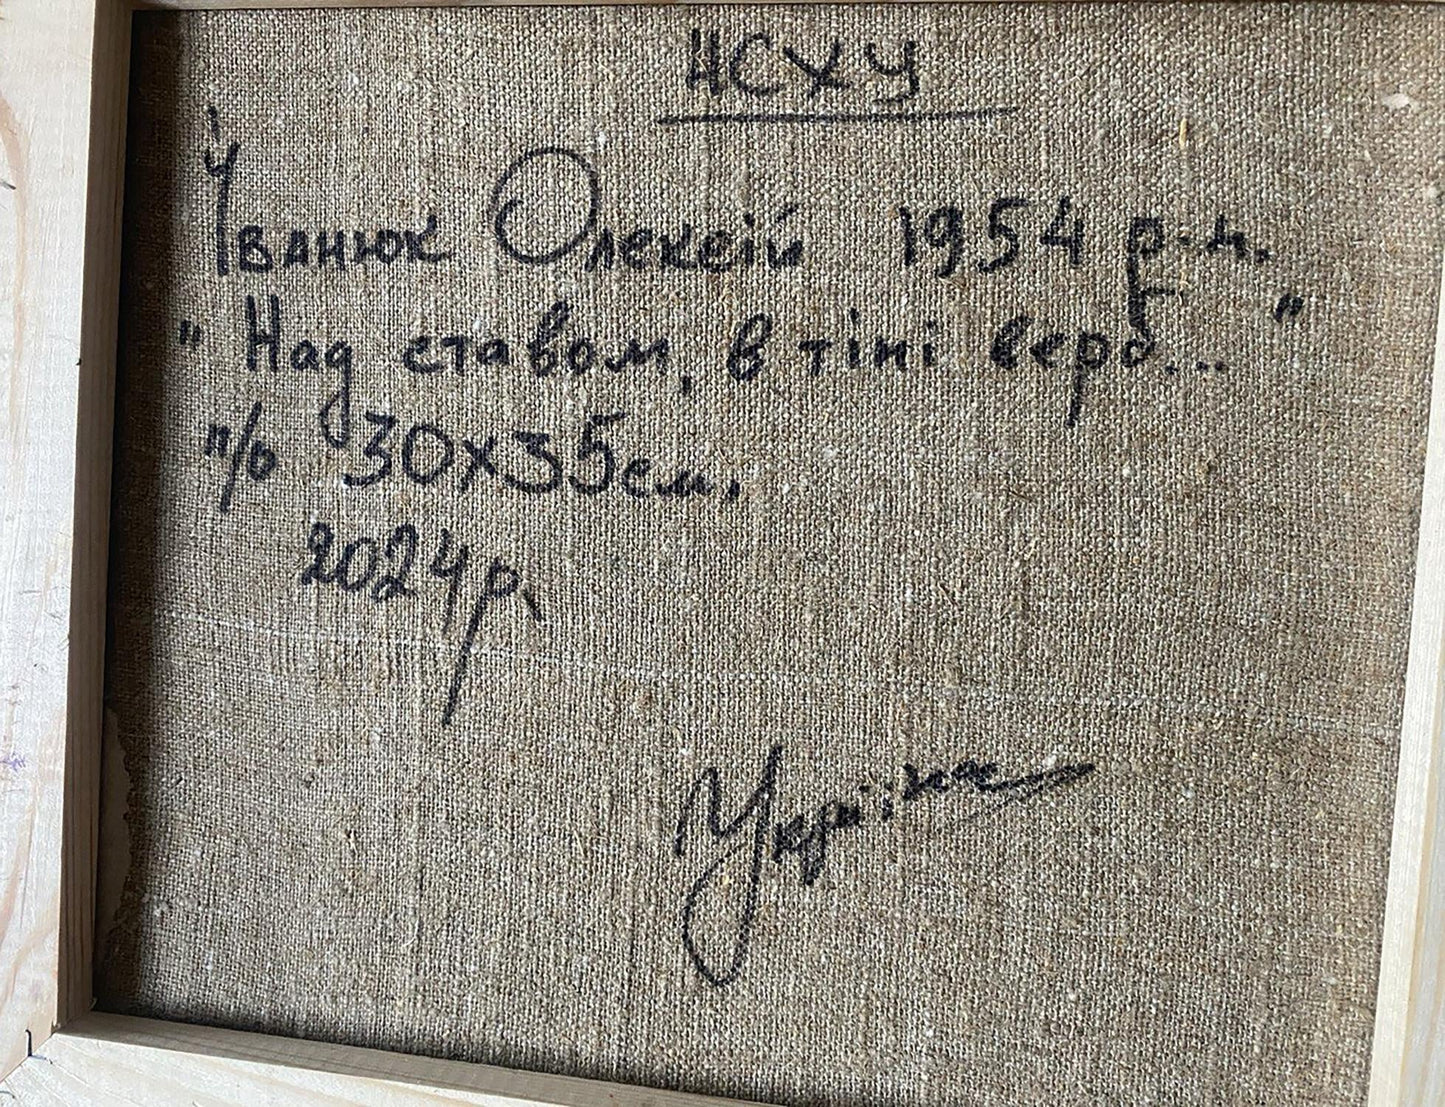 НСХУ
Іванюк Олексій 1954 р.н.
"Над ставом, в тіні верб..."
п/о 30х35см.
2024р.
Україна